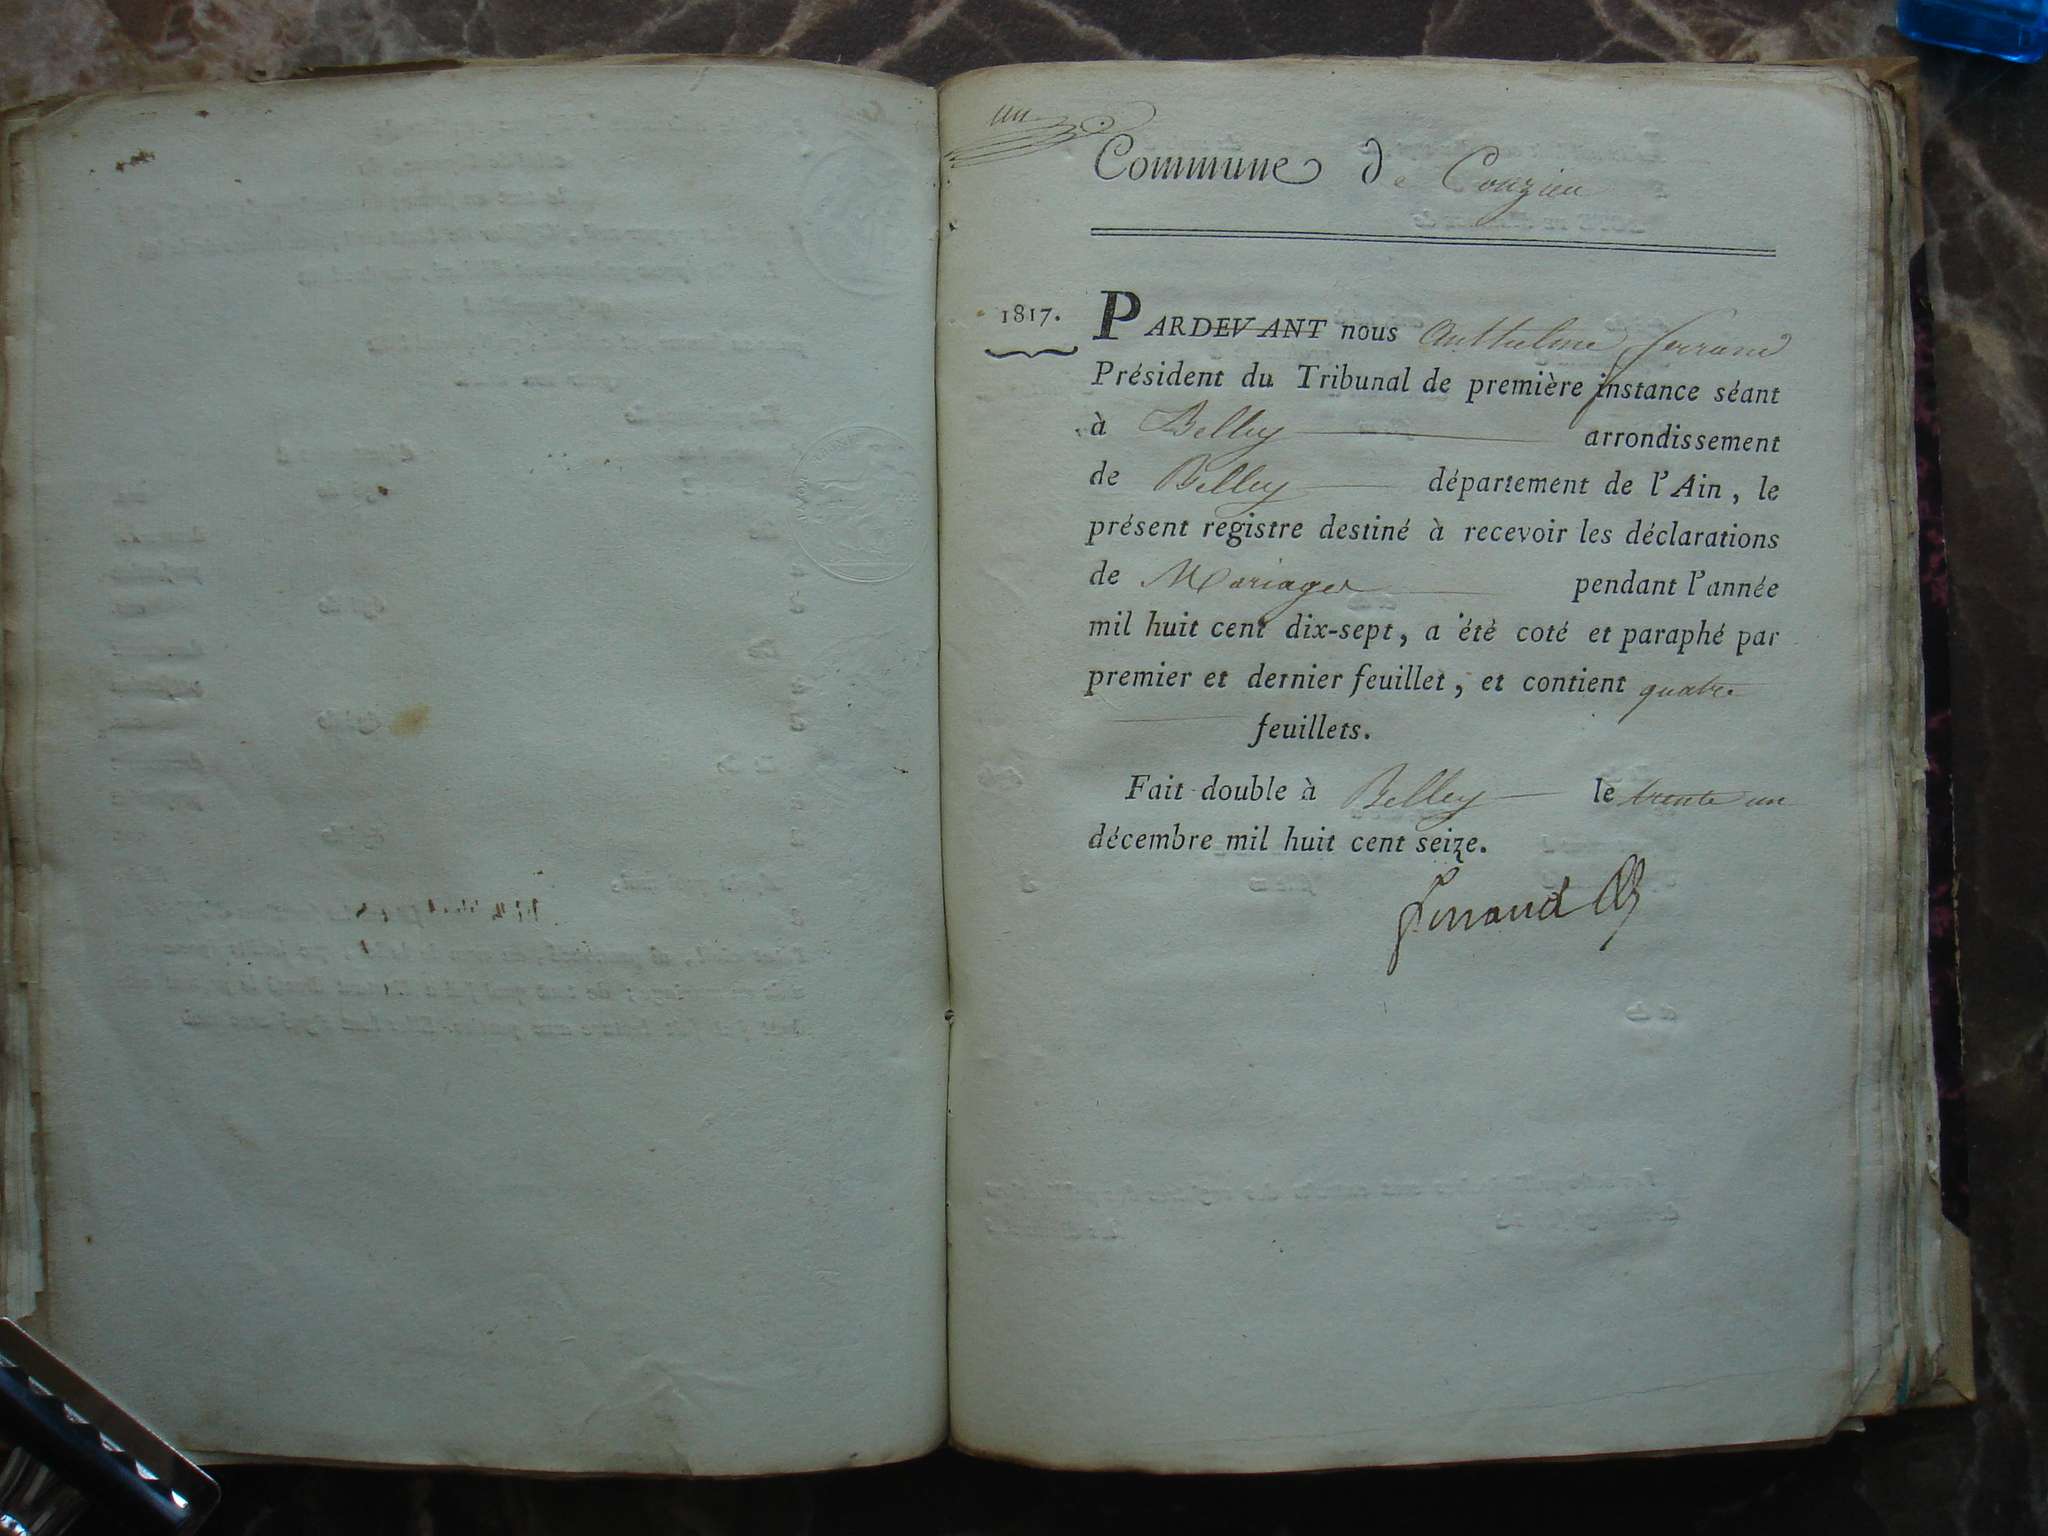 un
Commune de Conzieu
1817. PARDEVANT nous Anthelme ferrand
Président du Tribunal de première instance séant
à Belley arrondissement
de Belley département de l'Ain, le
présent registre destiné à recevoir les déclarations
de Mariages pendant l'année
mil huit cent dix-sept, a été coté et paraphé par
premier et dernier feuillet, et contient quatre
feuillets.
Fait double à Belley le trente un
décembre mil huit cent seize.
ferrand